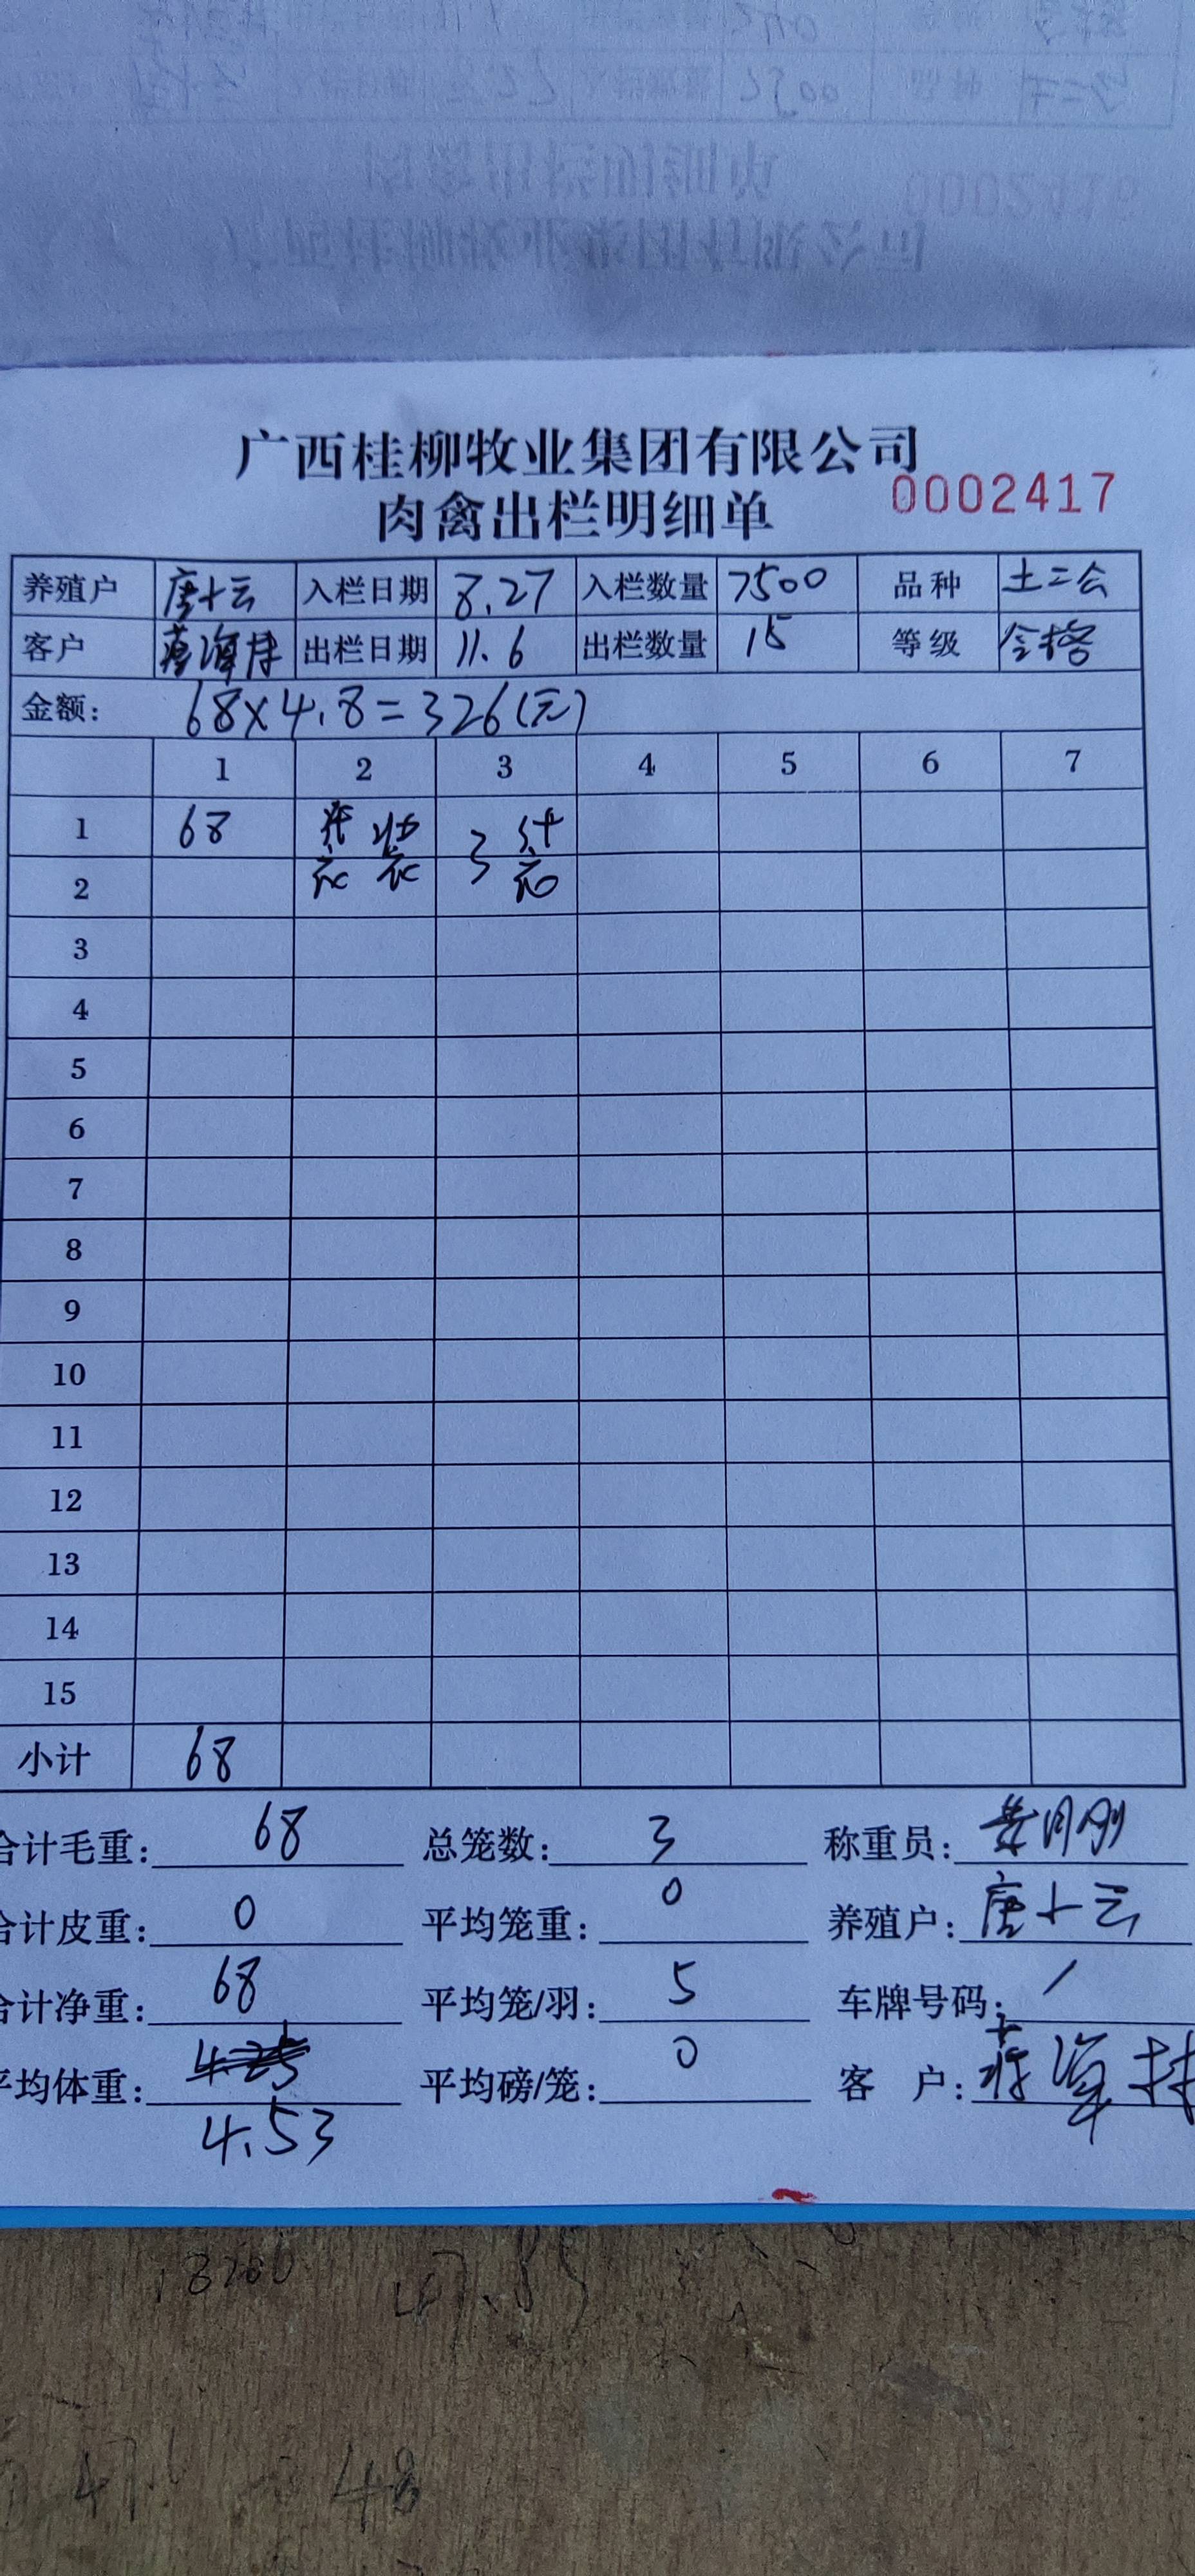 广西桂柳牧业集团有限公司
肉禽出栏明细单 0002417
养殖户 唐十云 入栏日期 8.27 入栏数量 7500 品种 土二公
客户 出栏日期 11.6 出栏数量 15 等级 合格
金额: 68×4.8=326(元)
1 2 3 4 5 6 7
1 68 装 3
2
3
4
5
6
7
8
9
10
11
12
13
14
15
小计 68
合计毛重: 68 总笼数: 3 称重员:
合计皮重: 0 平均笼重: 0 养殖户: 唐十云
合计净重: 68 平均笼/羽: 5 车牌号码: /
平均体重: 4.25 平均磅/笼: 0 客 户:
4.53
48